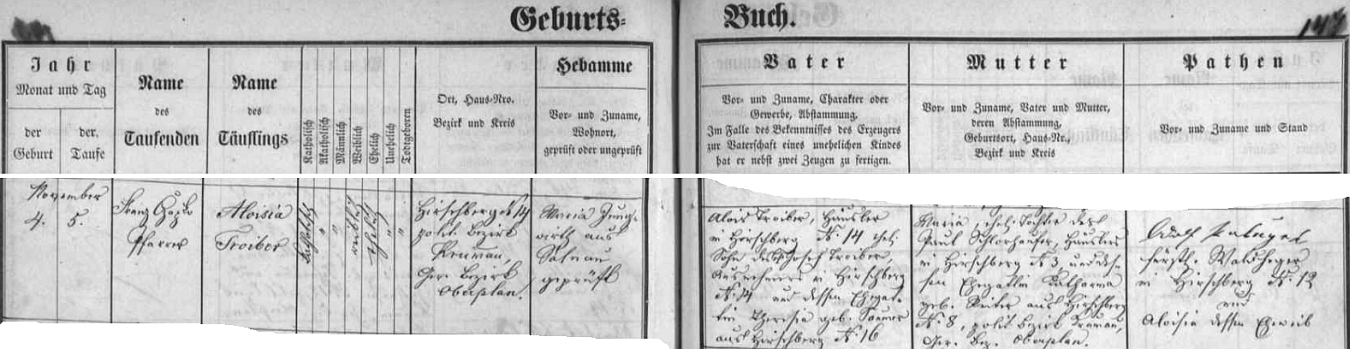 Geburts-
Buch.
Jahr
Monat und Tag
der
Geburt
der
Taufe
Name
des
Taufenden
Name
des
Täuflings
Katholisch
Akatholisch
Männlich
Weiblich
Ehelich
Unehelich
Todtgeboren
Ort, Haus-Nro.
Bezirk und Kreis
Hebamme
Vor- und Zuname,
Wohnort,
geprüft oder ungeprüft
Vater
Vor- und Zuname, Charakter oder
Gewerbe, Abstammung,
Im Falle des Bekenntnisses des Erzeugers
zur Vaterschaft eines unehelichen Kindes
hat er nebst zwei Zeugen zu fertigen.
Mutter
Vor- und Zuname, Vater und Mutter,
deren Abstammung,
Geburtsort, Haus-Nr.,
Bezirk und Kreis
Pathen
Vor- und Zuname und Stand
November
4. 5.
Franz
Pfarrer
Aloisia
Troiber
katholisch
"
"
weiblich
ehelich
"
"
Hirschbergen 14
polit. Bezirk
Krumau,
Ger. Bezirk
Oberplan.
Maria Jung-
wirth aus
Salnau
geprüft
Alois Troiber, Häusler
in Hirschberg N. 14 ehel.
Sohn des Josef Troiber,
Ausnehmers in Hirschberg
N. 14 und dessen Ehegat-
tin Theresia geb.
aus Hirschberg N. 16
Maria, ehel. Tochter des
Paul Häuslers
in Hirschberg N. 3, und des-
sen Ehegattin Katharina
geb. aus Hirschberg
N. 8, polit. Bezirk Krumau,
Ger. Bez. Oberplan.
Adolf
fürstl. Waldheger
in Hirschberg N. 12
und
Aloisia dessen Eheweib